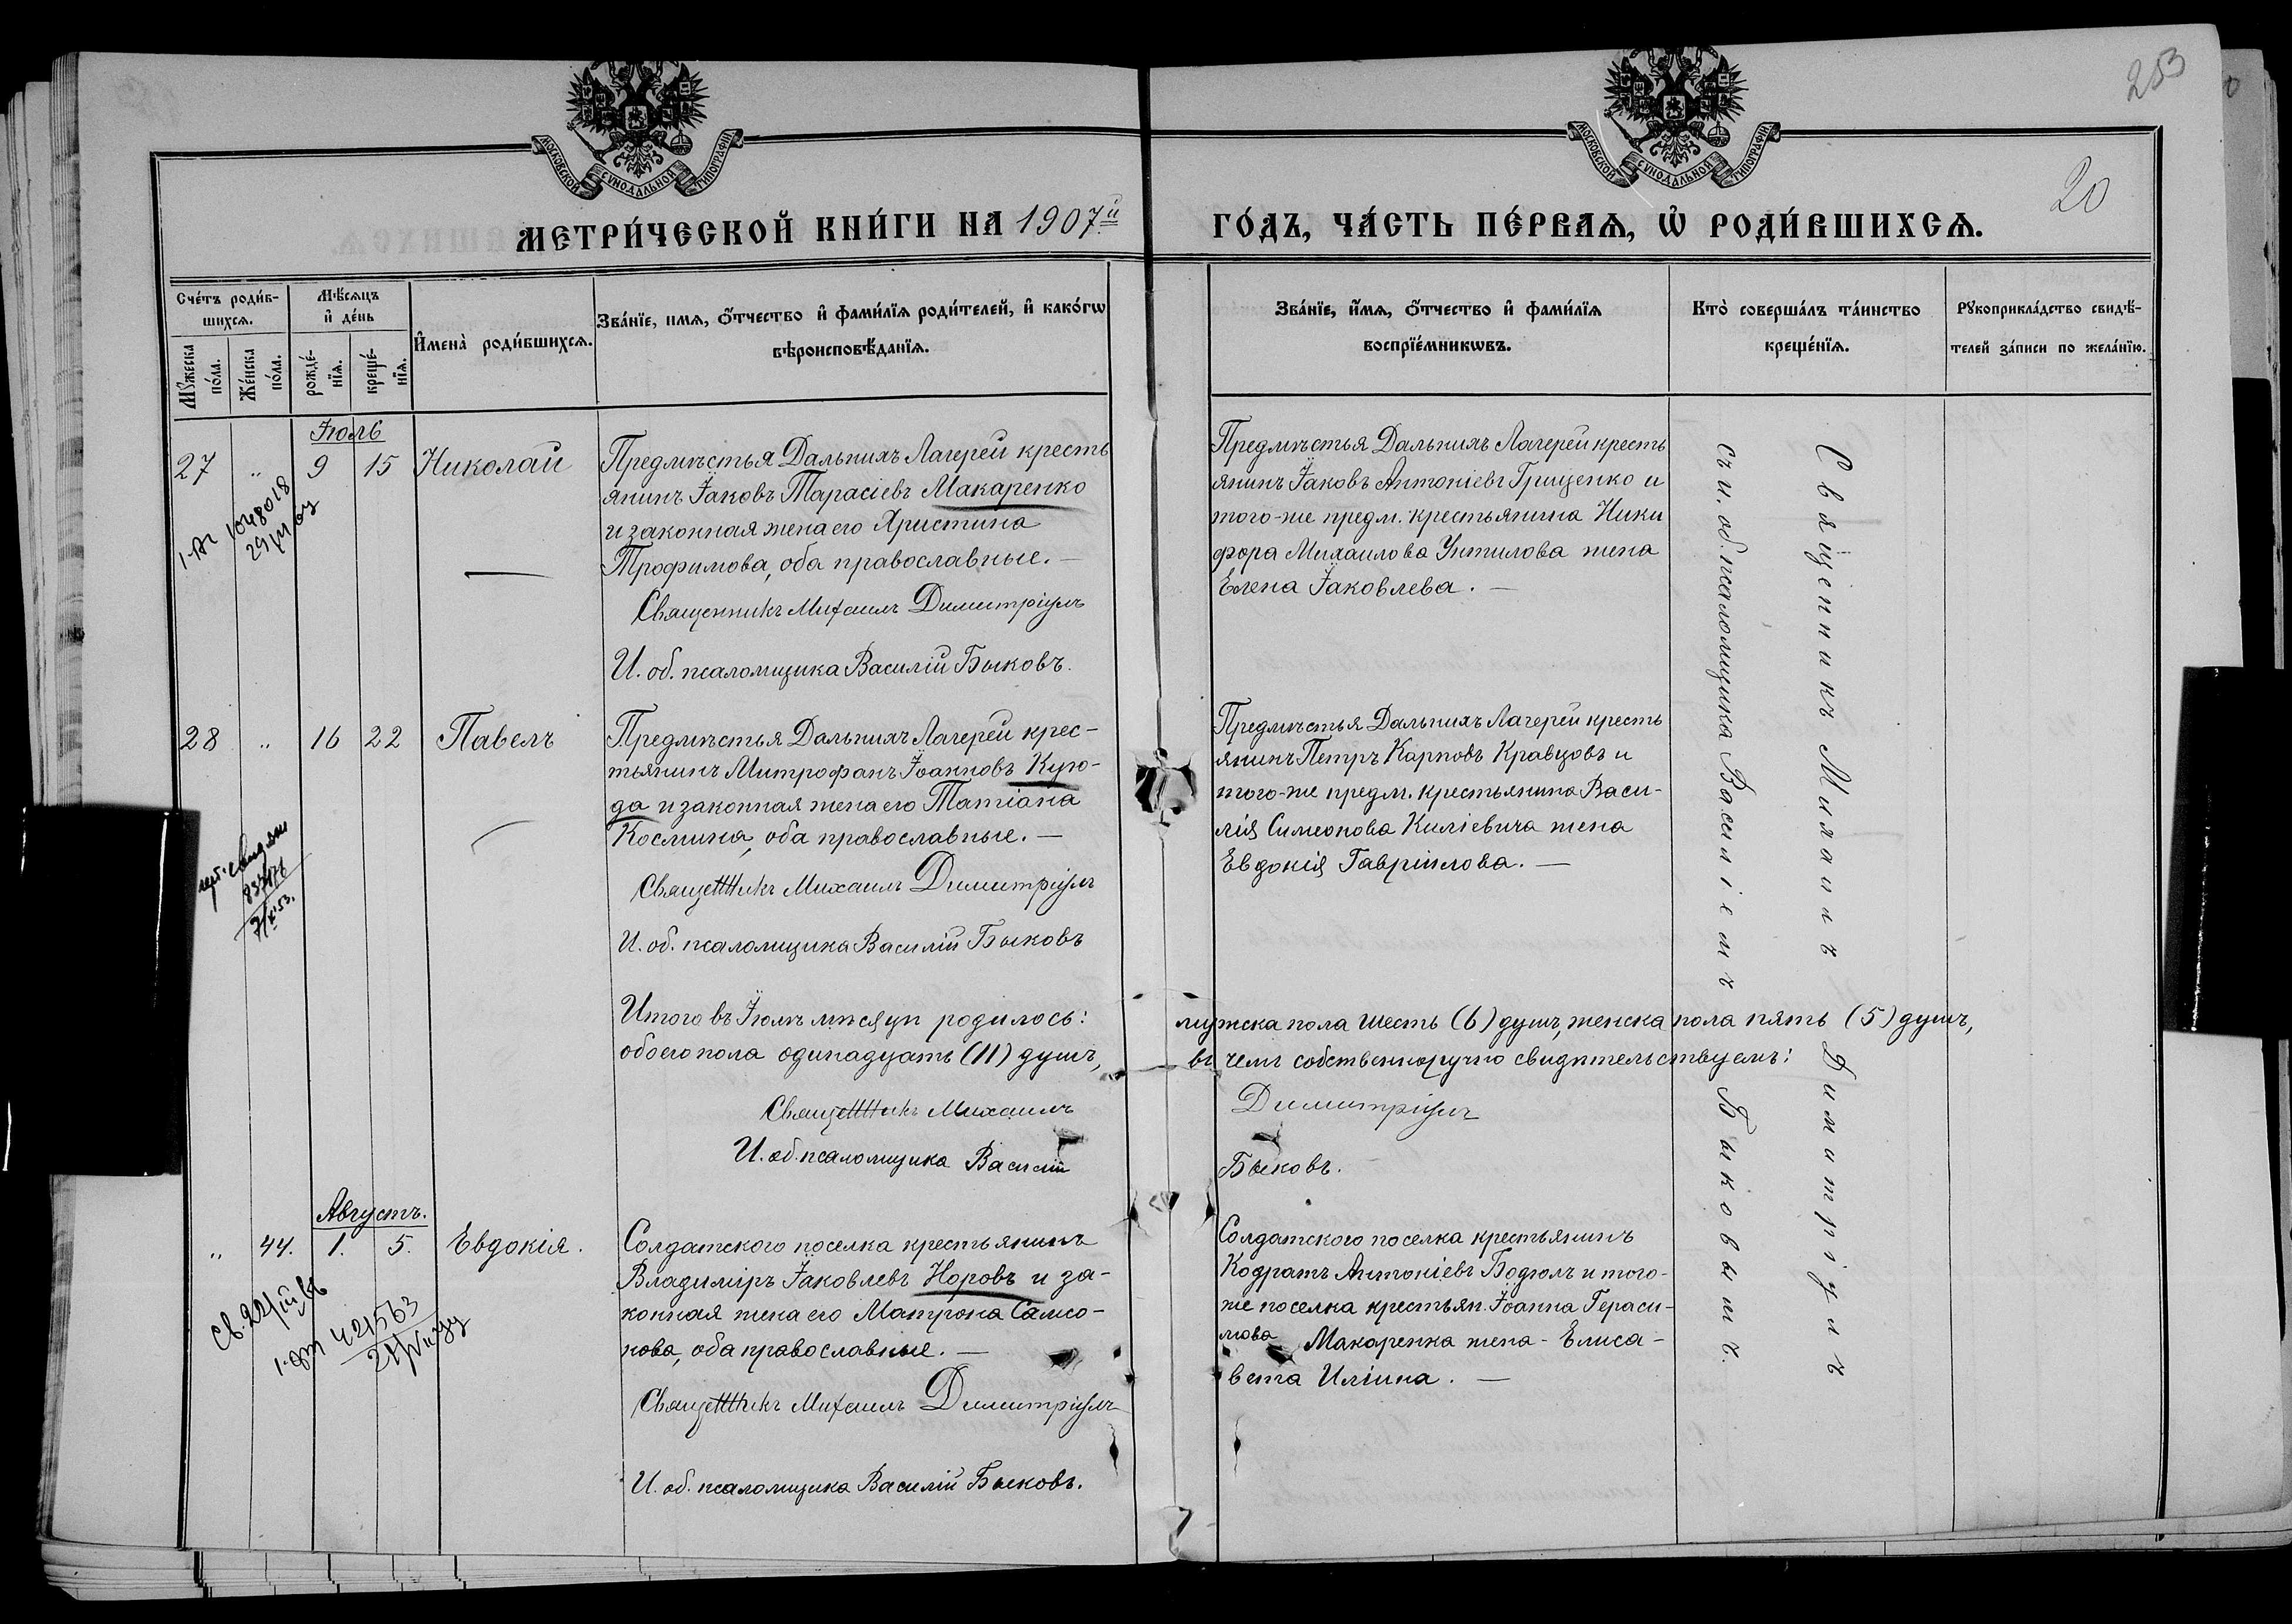 253
20
МОСКОВСКОЙ СУНОДАЛЬНОЙ ТИПОГРАФІИ.
МОСКОВСКОЙ СУНОДАЛЬНОЙ ТИПОГРАФІИ.
МЕТРИ́ЧЕСКОЙ КНИ́ГИ НА 1907.й
ГО́ДЪ, ЧА́СТЬ ПЕ́РВАѦ, Ѡ҆ РОДИ́ВШИХСѦ.
Счéтъ роди́в-
шихсѧ.
Мꙋжеска
по́ла.
Же́нска
по́ла.
Мѣ́сѧцъ
и҆ де́нь
рожде́-
нїѧ.
креще́-
нїѧ.
И҆мена̀ роди́вшихсѧ.
Зва́нїе, имѧ, ѻ҆́тчество и҆ фами́лїѧ роди́телей, и҆ како́гѡ
вѣроисповѣ́данїѧ.
Зва́нїе, и҆́мѧ, ѻ҆́тчество и҆ фами́лїѧ
воспрїе́мникѡвъ.
Кто̀ соверша́лъ та́инство
креще́нїѧ.
Рꙋкоприкла́дство свидѣ́-
телей за́писи по жела́нїю.
Іюль
27 " 9 15 Николай
Предмѣстья Дальнихъ Лагерей кресть
янинъ Іаковъ Тарасіевъ Макаренко
и законная жена его Христина
Трофимова, оба православные. —
Священникъ Михаилъ Димитріумъ
И. об. псаломщика Василій Быковъ.
Предмѣстья Дальнихъ Лагерей кресть
янинъ Іаковъ Антоніевъ Грищенко и
того-же предм. крестьянина Ники
фора Михаилова Унтилова жена
Елена Іаковлева. —
1048018
28 " 16 22 Павелъ
Предмѣстья Дальнихъ Лагерей крес-
тьянинъ Митрофанъ Іоанновъ Кую-
да и законная жена его Татіана
Космина, оба православные. —
Священникъ Михаилъ Димитріумъ
И. об. псаломщика Василій Быковъ
Предмѣстья Дальнихъ Лагерей кресть
янинъ Петръ Карповъ Кравцовъ и
того-же предм. крестьянина Васи-
лія Симеонова Киліевича жена
Евдокія Гавріилова. —
Итого въ Іюлѣ мѣсяцѣ родилось:
обоего пола одинадцать (11) душъ,
мужска пола шесть (6) душъ, женска пола пять (5) душъ,
въ чемъ собственноручно свидѣтельствуемъ:
Священникъ Михаилъ
Димитріумъ
И. об. псаломщика Василій
Быковъ.
Августъ.
" 44. 1. 5. Евдокія.
Солдатского поселка крестьянинъ
Владиміръ Іаковлевъ Норовъ и за-
конная жена его Матрона Самсо-
нова, оба православные. —
Священникъ Михаилъ Димитріумъ
И. об. псаломщика Василій Быковъ.
Солдатского поселка крестьянинъ
Кодратъ Антоніевъ Бодюлъ и того-
же поселка крестьян. Іоанна Гераси-
мова Макаренка жена - Елиса-
вета Иліина. —
421563
Священникъ Михаилъ Димитріумъ
съ и. об. псаломщика Василіемъ Быковымъ.